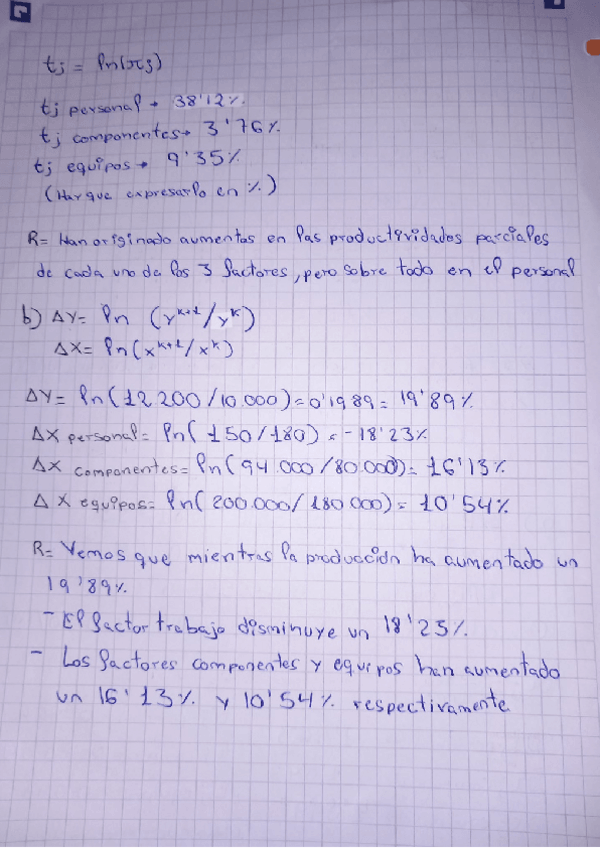 tj = ln(πj)
tj personal → 38'12%.
tj componentes → 3'76%.
tj equipos → 9'35%
(Hay que expresarlo en %)
R= Han originado aumentos en las productividades parciales
de cada uno de los 3 factores, pero sobre todo en el personal
b) ΔY= ln (Y^k+1/Y^k)
ΔX= ln(x^k+1/x^k)
ΔY= ln(12.200/10.000)=0'1989= 19'89%
ΔX personal= ln(150/180) = -18'23%
ΔX componentes= ln(94.000/80.000)= 16'13%
ΔX equipos= ln(200.000/180.000)= 10'54%
R= Vemos que mientras la producción ha aumentado un
19'89%
- El factor trabajo disminuye un 18'23%.
- Los factores componentes y equipos han aumentado
un 16'13% y 10'54% respectivamente